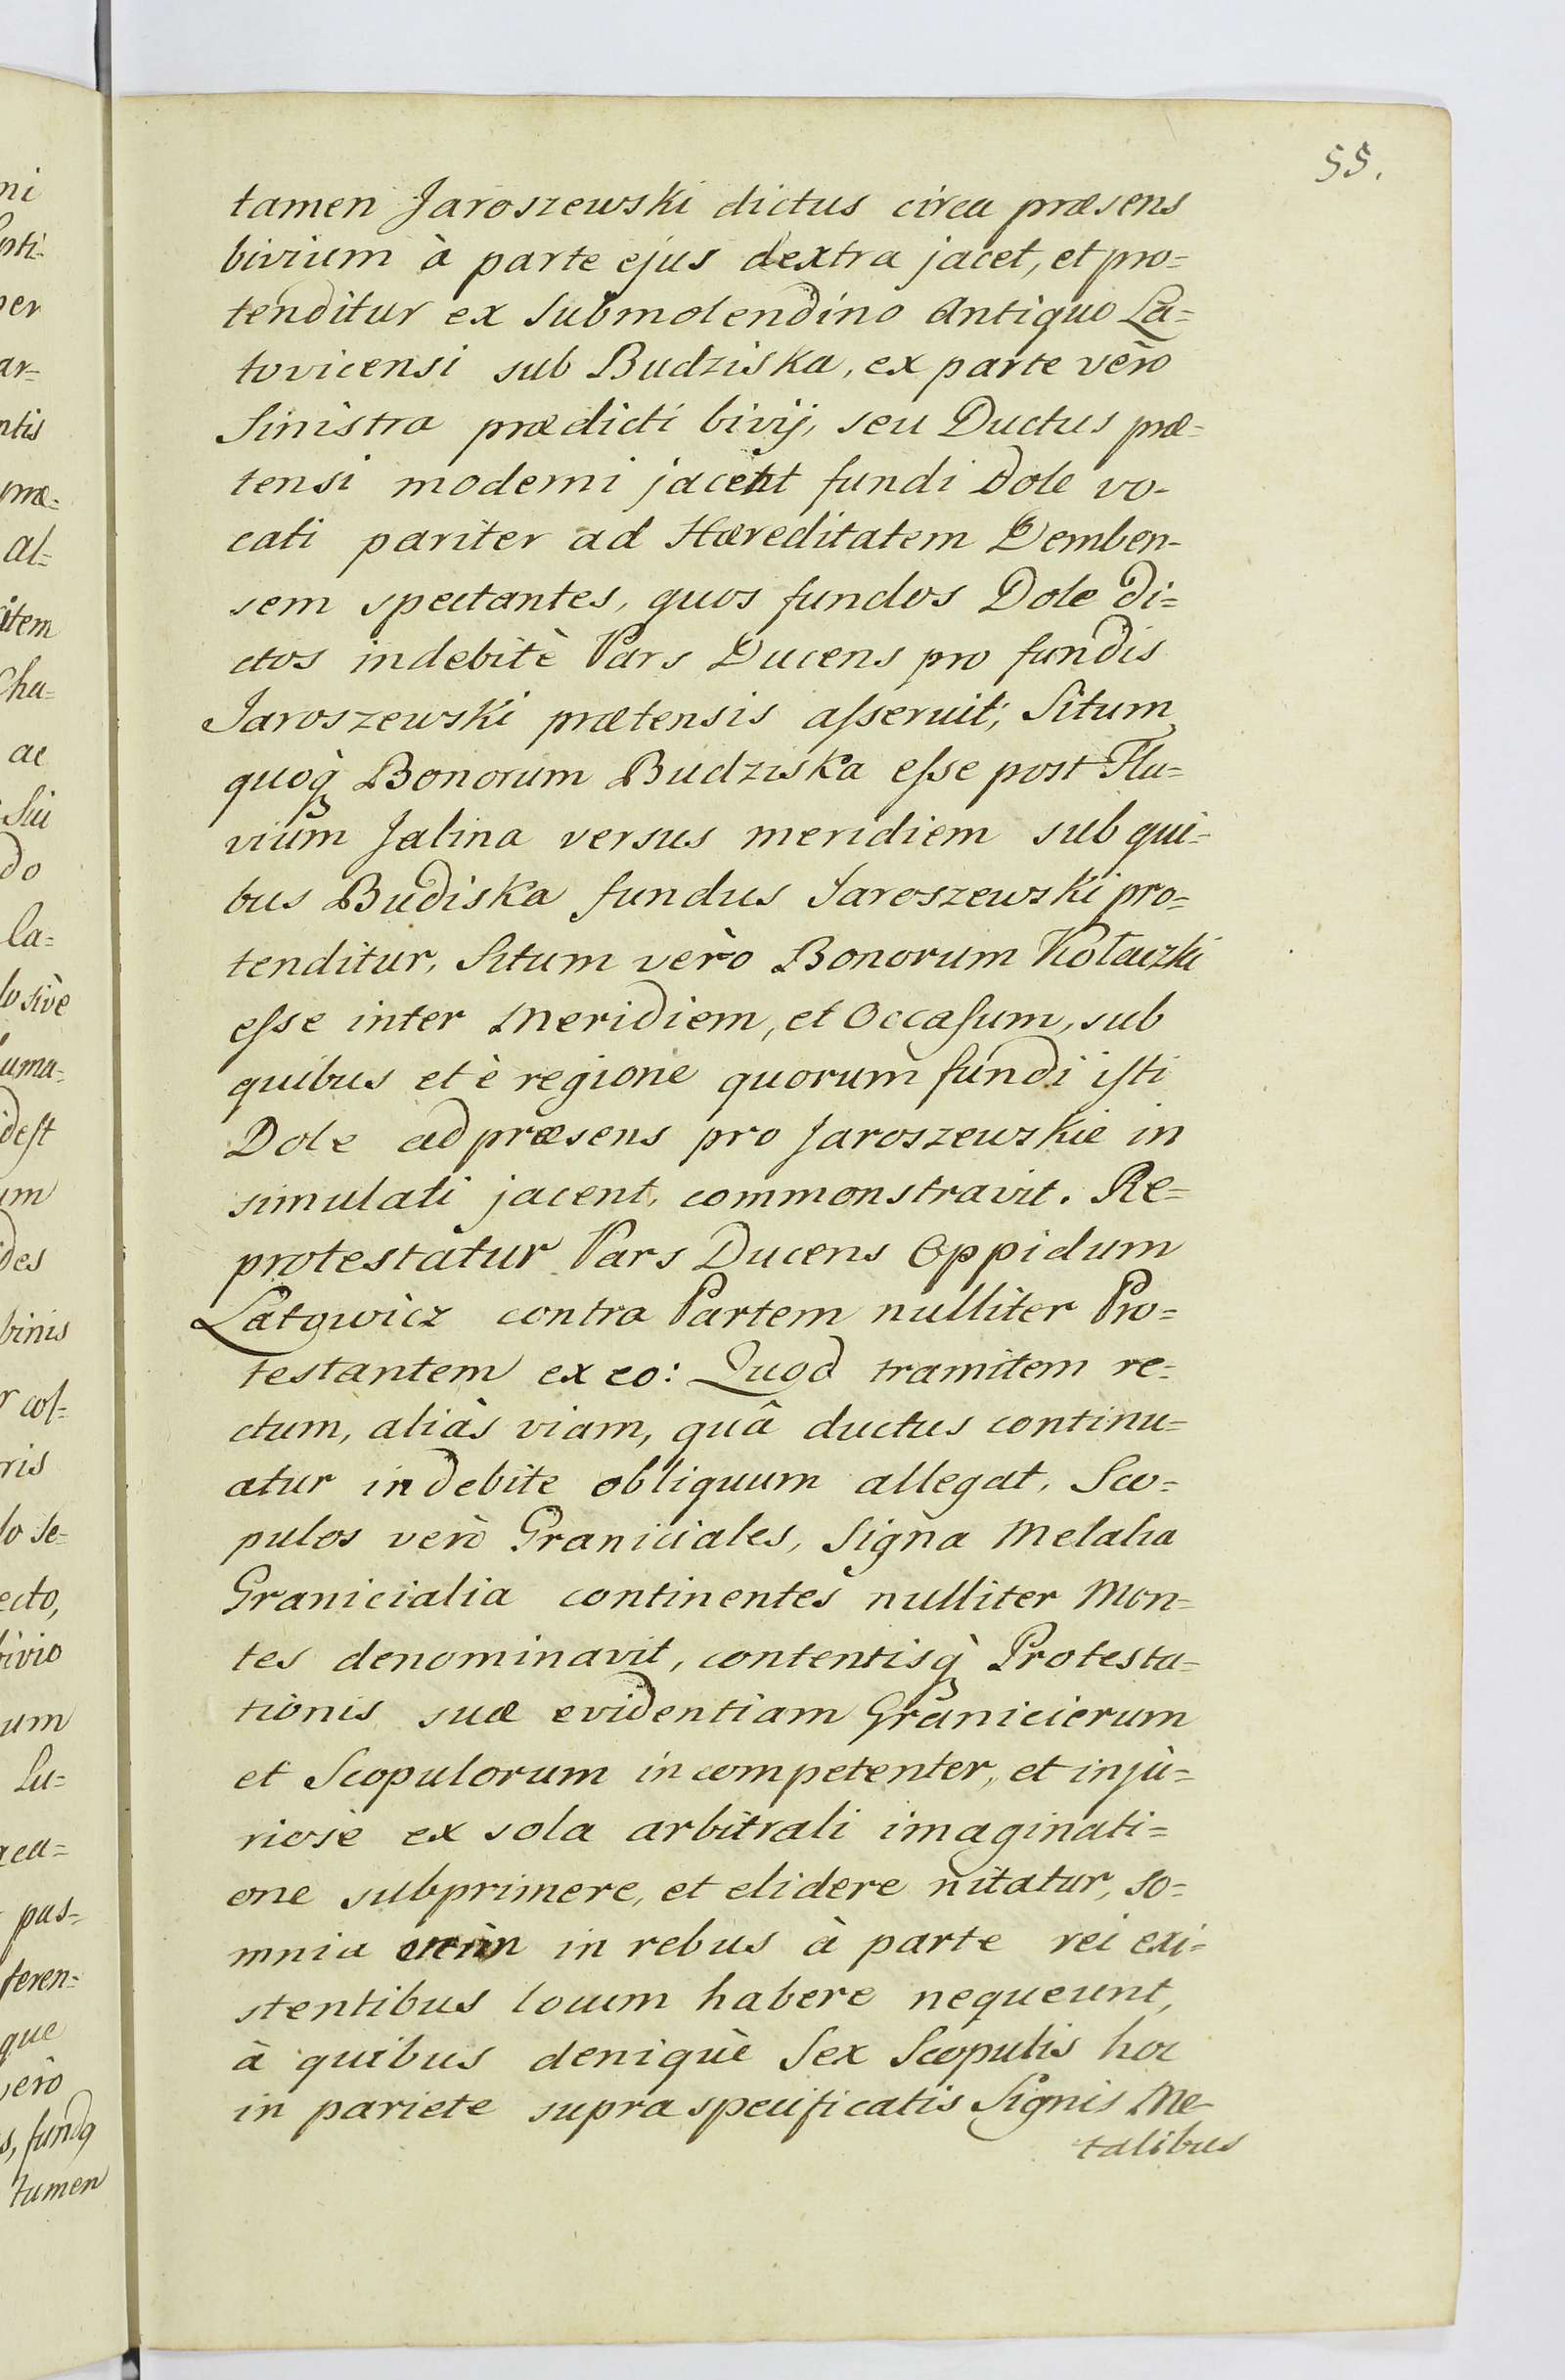 55.
tamen Jaroszewski dictus circa præsens
bivium à parte ejus dextra jacet, et pro=
tenditur ex Submolendino Antiquo La=
tovicensi sub Budziska, ex parte vèro
Sinistra prædicti bivij, seu Ductus præ=
tensi moderni jacent fundi Dole vo-
cati pariter ad Hæreditatem Demben-
sem spectantes, quos fundos Dole di=
ctos indebitè Pars Ducens pro fundis
Jaroszewski prætensis aſseruit; Situm
quoq̀ Bonorum Budziska eſse post Flu=
vium Jalina versus meridiem sub qui=
bus Budiska fundus Jaroszewski pro=
tenditur, Situm vèro Bonorum Kołaczki
eſse inter Meridiem, et Occaſum, sub
quibus et è regione quorum fundi iſti
Dole ad præsens pro Jaroszewskie in
simulati jacent, commonstravit. Re=
protestatur Pars Ducens Oppidum
Latowicz contra Partem nulliter Pro=
testantem ex eo: Quod tramitem re=
ctum, aliàs viam, quâ ductus continu=
atur indebite obliquum allegat, Sco=
pulos verò Graniciales, Signa Metalia
Granicialia continentes nulliter Mon=
tes denominavit, contentisq̀ Protesta=
tionis suæ evidentiam Granicierum
et Scopulorum incompetenter, et inju=
riosè ex sola arbitrali imaginati=
one subprimere, et elidere nitatur, so=
mnia in rebus à parte rei exi=
stentibus locum habere nequeunt,
à quibus deniquè Sex Scopulis hoc
in pariete supra specificatis Signis Me-
talibus
ni
per
ar=
ntis
præ=
al=
item
Cha=
ac
Sui
do
la=
idest
um
ides
binis
ris
lo se=
ecto,
bivio
um
Lu=
pas=
feren=
que
vèro
tamen